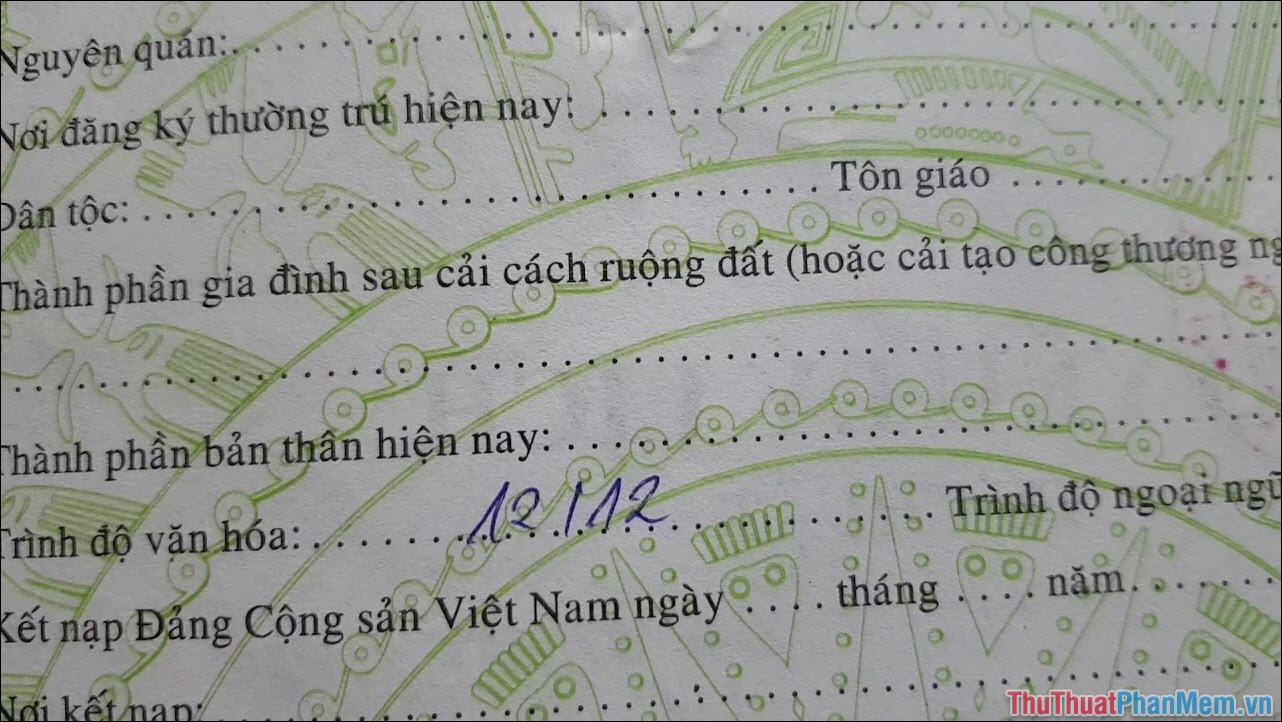 Nguyên quán:
Nơi đăng ký thường trú hiện nay:
Dân tộc: Tôn giáo
Thành phần gia đình sau cải cách ruộng đất (hoặc cải tạo công thương ng
Thành phần bản thân hiện nay:
Trình độ văn hóa: 12/12 Trình độ ngoại ngữ
Kết nạp Đảng Cộng sản Việt Nam ngày .... tháng .... năm
Nơi kết nạp:
ThuThuatPhanMem.vn